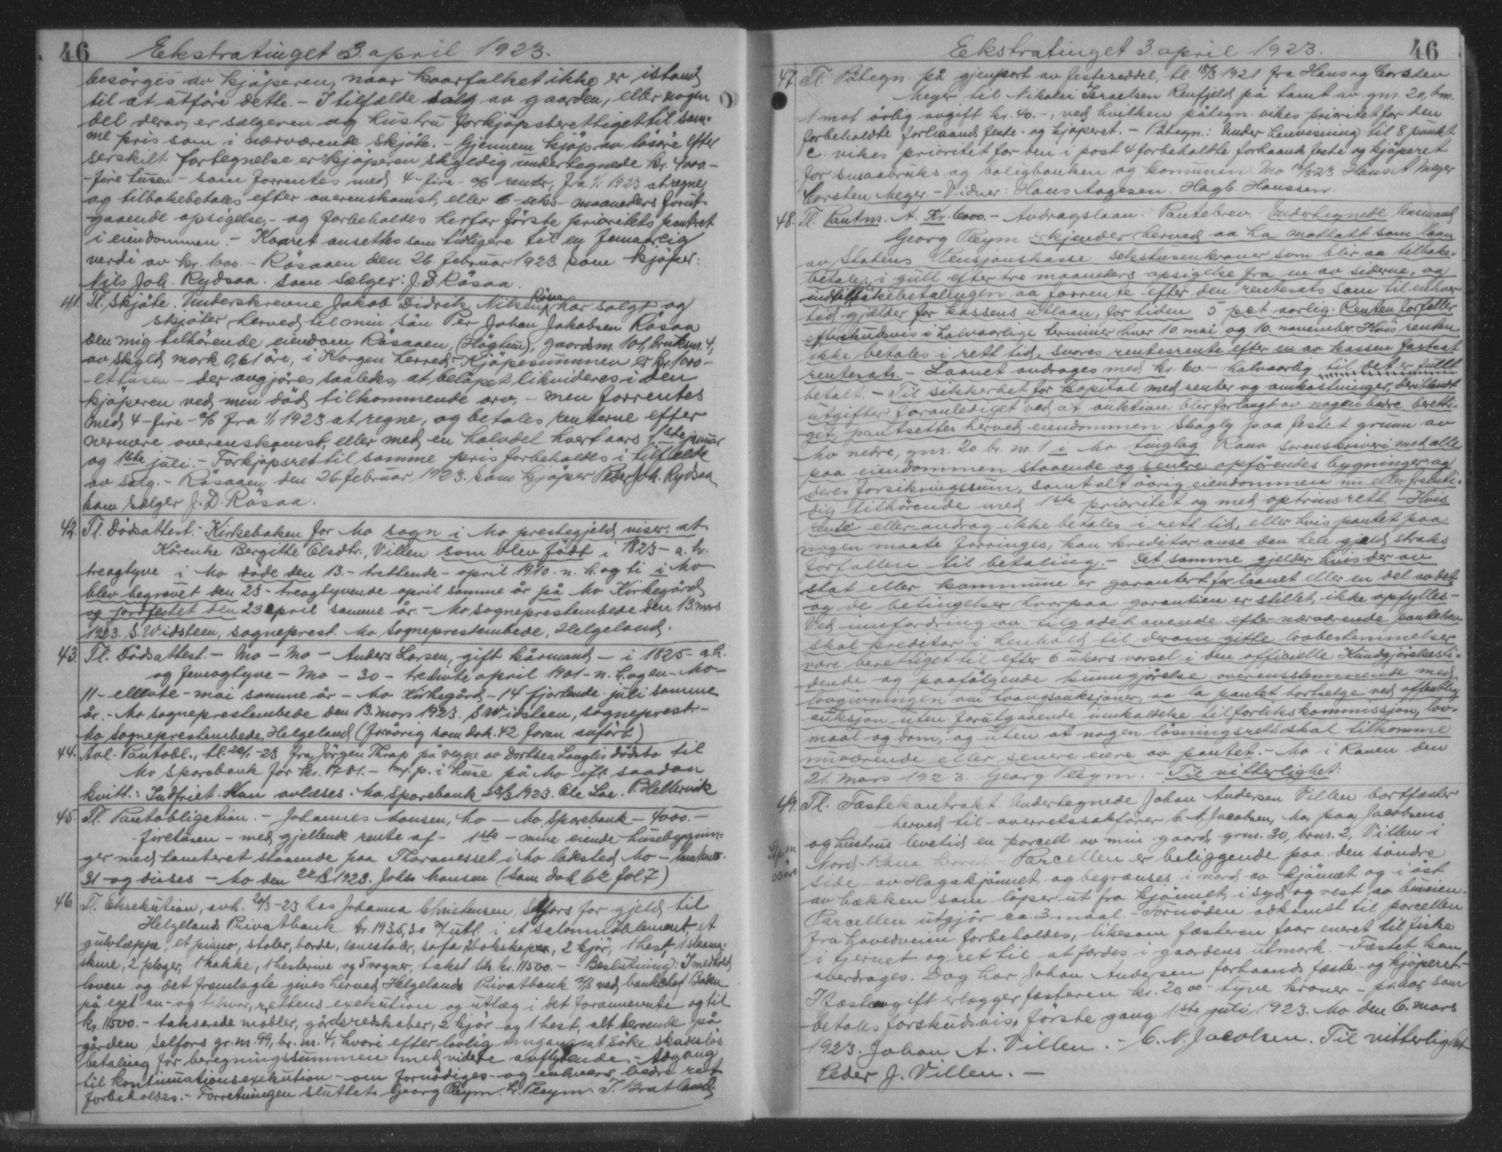 46 Ekstratinget 3 april 1923.
besörges av kjöperen, naar kaarfolket ikke er istand
til at utföre dette. - I tilfælde salg av gaarden, eller nogen
del derav, er sælgeren og hustru forkjöpsberettiget til sam-
me pris som i nærværende skjöte. - Gjennem kjöp av lösöre efter
særskilt fortegnelse er kjöperen skyldig undertegnede kr. 4000 -
fire tusen - som forrentes med 4 - fire - % rente, fra 1/1 1923 at regne
og tilbakebetales efter overenskomst, eller 6 - seks - maaneders forut-
gaaende opsigelse, - og forbeholdes herfor förste prioritets panteret
i eiendommen. - Kaaret ansettes som tidligere til en femaarlig
verdi av kr. 600 - Rösaaen den 26 februar 1923 som kjöper:
Nils Joh. Rydsaa. som Sælger: J. D. Rösaa.
41. Tl. Skjöte. Underskrevne Jakob Didrik Nilsen Rösaa har solgt og
skjöter herved til min sön Per Johan Jakobsen Rösaa
den mig tilhörende eiendom Rösaaen, (Haglund), gaardsnr. 101, bruksnr. 4,
av skyld mark 0,61 öre, i Korgen herred. Kjöpesummen er kr. 1000 -
- ettusen - der avgjöres saaledes, at belöpet likvideres i den
kjöperen ved min död tilkommende arv, - men forrentes
med 4 - fire - % fra 1/1 1923 at regne, og betales renterne efter
nærmere overenskomst, eller med en halvdel hvert aars 1ste januar
og 1ste juli. - Forkjöpsret til samme pris forbeholdes i tilfælde
av salg. - Rösaaen den 26 februar 1923. Som kjöper Peder Joh. Rydsaa
Som Sælger J. D. Rösaa.
42. Tl. Dödsattest. Kirkeboken for Mo sogn i Mo prestegjeld viser, at
Karenke Bergitte Olsdtr., Villen som blev födt i 1823 - a. h.
treogtyve i Mo döde den 13. - trettende - april 1910 - n. h. og ti i Mo
blev begravet den 23 - treogtyvende april samme år på Mo Kirkegård
og jordfestet den 23 april samme år. - Mo sogneprestembede den 13. mars
1923. S. Widsteen, sogneprest. Mo Sogneprestembede, Helgeland.
43. Tl. Dödsattest - Mo - Mo - Anders Larsen, gift kårmand - i 1825 - a.h.
og femogtyve - Mo - 30 - tredivte april 1901 - n. h. og en - Mo -
11 - ellevte - mai samme år - Mo Kirkegård - 14 fjortende juli samme
år. - Mo sogneprestembede den 13. mars 1923. S. Widsteen, sogneprest -
Mo Sogneprestembede, Helgeland (Forövrig som dok. 42 foran anfört)
44. Avl. Pantobl., tl. 20/1-23 fra Jörgen Thrap på vegne av Dorthea Langlis dödsbo til
Mo Sparebank for kr. 1701. - m. p. i huse på Mo oft. saadan
kvitt.: Indfriet. Kan avlæses. Mo Sparebank 23/3 1923. Ole Loe. P. Hellervik
45. Tl. Pantobligation. - Johannes Monsen, Mo - Mo Sparebank - 4000. -
firetusen - med gjellende rente af - 1ste - mine eiende husebygnin-
ger med tomteret staaende paa Thoranesset i Mo ladested, Mo -
31 og disses - Mo den 22/3 1923. Johs Monsen (Som dok 62 fol 7)
46. Tl. Eksekution, avh. 24/3-23 hos Johanna Christensen, Selfors for gjeld til
Helgeland Privatbank kr. 1935,30 % utl. i et salonmöblement, et
gulvtæppe, et piano, stoler, borde, lænestole, sofa 2 bokskaper, 2 kjör, 1 hest,
2 ploger, 1 hakke, 1 hesterive og 5 vogner, takst tils. kr. 11500. - Beslutning: I medhold
loven og det fremlagte gives herved Helgelands Privatbank A/S ved bankchef Boden
på eget an- og tilsvar, rettens exekution og utlæg i det forannevnte og til
kr. 11500. - takserede möbler, gårdsredskaber, 2 kjör og 1 hest, alt beroende på
gården Selfors gr. nr. 19, br. nr. 4, hvori efter lovlig omgang at söke skadeslös
betaling for beregningssummen med videre avflytende. - Adgang
til kontinuationsexekution - om fornödiges - og enhvers bedre ret
forbeholdes. - Forretningen sluttet. Georg Pleym. L. Pleym. T. Bratland
Ekstratinget 3 april 1923. 46
47. Tl. Påtegn på gjenpart av festeseddel, tl. 1921 fra Hans og Corsten
Meyer til Nikolai Israelsen Renfjeld på tomt av gnr. 20, bnr.
1 mot årlig avgift kr. 40. -, ved hvilken påtegn. vikes prioritet for den
forbeholdte forhaands feste- og kjöperet. - Påtegn.: Under henvisning til 8 punkt
c. vikes prioritet for den i post 4 forbeholdte forhaands feste og kjöperet
for småbruks og boligbanken og komunen Mo 1923 Hans A Meyer
Corsten Meyer. - Vidner: Hans Aagesen. Hagb Hanssen.
48. Tl. Pantm. A. Kr. 6000. - Avdragslaan. Pantebrev. Undertegnede lensmand
Georg Pleym erkjender herved aa ha mottatt som laan
av Statens Pensjonskasse sekstusenkroner som blir aa tilbake-
betale i gull efter tre maaneders opsigelse fra en av siderne, og
indtil tilbakebetalingen aa forrente efter den rentesats som til enhver
tid gjælder for kassens utlaan, for tiden 5 pct. aarlig. Renten forfaller
efterskudsvis i halvaarlige terminer hver 10. mai og 10. november. Hvis renten
ikke betales i rett tid, svares rentesrente efter en av kassen fastsat
rentesats. - Laanet avdrages med kr. 60. - halvaarlig til det er fullt
betalt. - Til sikkerhet for kapital med renter og omkostninger, deriblandt
utgifter foranlediget ved at auktion blir forlangt av nogen bedre beretti-
get, pantsettes herved eiendommen Skogly paa festet grunn av
Mo nedre, gnr. 20 br. nr. 1 i Mo tinglag Rana Sorenskriveri med alle
paa eiendommen staaende og senere opförendes bygninger og
deres forsikringssum, samt alt övrig eiendommen nu eller fremti-
dig tilhörende med 1ste prioritet og med optrinsrett. - Hvis
rente eller avdrag ikke betales i rett tid, eller hvis pantet paa
nogen maate forringes, kan kreditor anse den hele gjeld straks
forfallen til betaling. - Det samme gjelder hvis der av
stat eller kommune er garantert for laanet eller en del av det
og de betingelser hvorpaa garantien er stillet, ikke opfylles. -
Ved innfordring av tilgodehavende efter nærværende panteheftelse
skal kreditor i henhold til derom gitte lovbestemmelser
være berettiget til efter 6 ukers varsel i den officielle Kundgjörelsesti-
dende og paafölgende kunngjörelse overensstemmende med
lovgivningen om tvangsauksjoner, aa la pantet bortselge ved offentlig
auksjon uten forutgaaende innkaldelse til forlikskommisjon, lov-
maal og dom, og uten at nogen lösningsrett skal tilkomme
nuværende eller senere eiere av pantet. - Mo i Ranen den
21. mars 1923. Georg Pleym. - Til vitterlighet:
49. Tl. Fæstekontrakt. Undertegnede Johan Andersen Villen bortfæster
herved til overretssakförer C. N. Jacobsen, Mo, paa Jacobsens
og hustrus levetid en parcell av min gaard, gnr. 30, brnr. 2, Villen i
Nord-Rana herred. - Parcellen er beliggende paa den söndre
side av Hagakjönnet, og begrænses i nord av kjönnet og i öst
av bækken som löper ut fra kjönnet, i syd og vest av buveien.
Parcellen utgjör ca 3 maal. - Fornöden adkomst til parcellen
fra hovedveien forbeholdes, likesom fæsteren faar eneret til fiske
i tjernet og ret til at færdes i gaardens utmark. - Fæstet kan
overdrages. Dog har Johan Andersen forhaands fæste- og kjöperet. -
I fæsteavgift erlægger fæsteren kr. 20.00 - tyve kroner - pr. aar som
betales forskudsvis, förste gang 1ste juli 1923. Mo den 6. mars
1923. Johan A. Villen. - C. N. Jacobsen. Til vitterlighet
Peder J. Villen. -